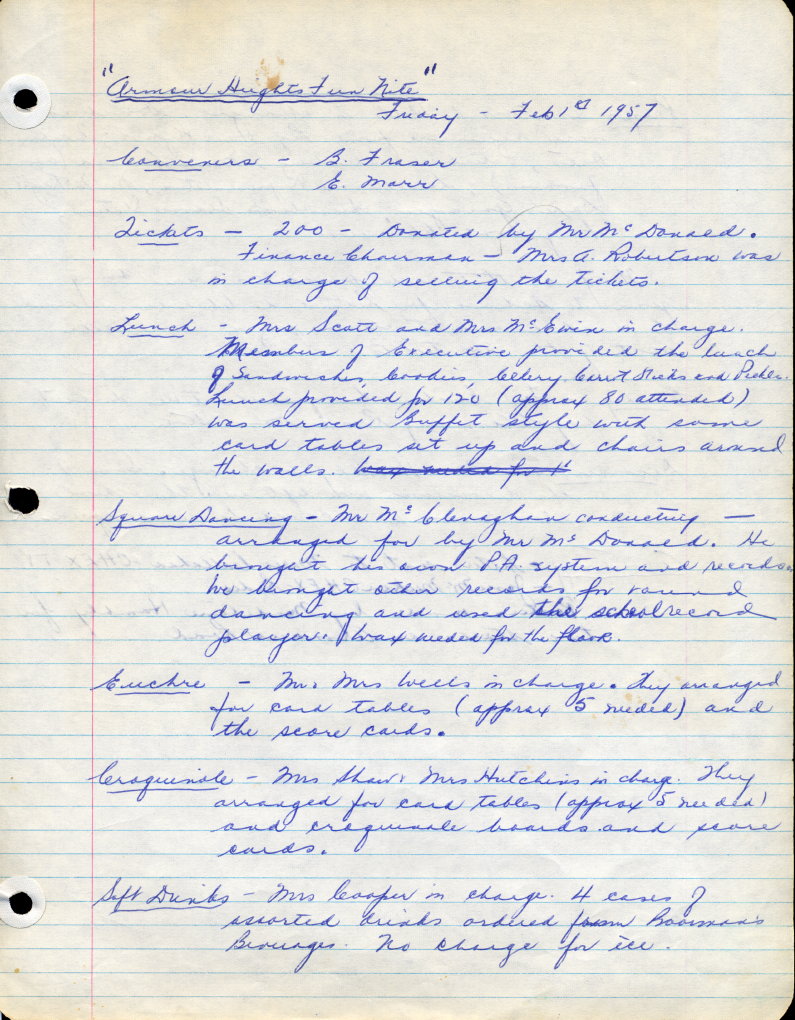 "Armour Heights Fun Nite"
Friday - Feb 1st 1957
Conveners - B. Fraser
E. Marr
Tickets - 200 - Donated by Mr McDonald.
Finance Chairman - Mrs A. Robertson was
in charge of selling the tickets.
Lunch - Mrs Scott and Mrs McEwin in charge.
Members of Executive provided the lunch
of Sandwiches, Cookies, Celery, Carrot Sticks and Pickles.
Lunch provided for 120 (approx 80 attended)
was served Buffet style with some
card tables set up and chairs around
the walls. Wax needed for f
Square Dancing - Mr McClenaghan conducting -
arranged for by Mr McDonald. He
brought his own P.A. system and records.
We brought other records for round
dancing and used the school record
player. Wax needed for the floor.
Euchre - Mr. Mrs Wells in charge. They arranged
for card tables (approx 5 needed) and
the score cards.
Croquinole - Mrs Shaw & Mrs Hutchins in charge. They
arranged for card tables (approx 5 needed)
and croquinole boards and score
cards.
Soft Drinks - Mrs Cooper in charge. 4 cases of
assorted drinks ordered from Boorman's
Beverages. No charge for ice.